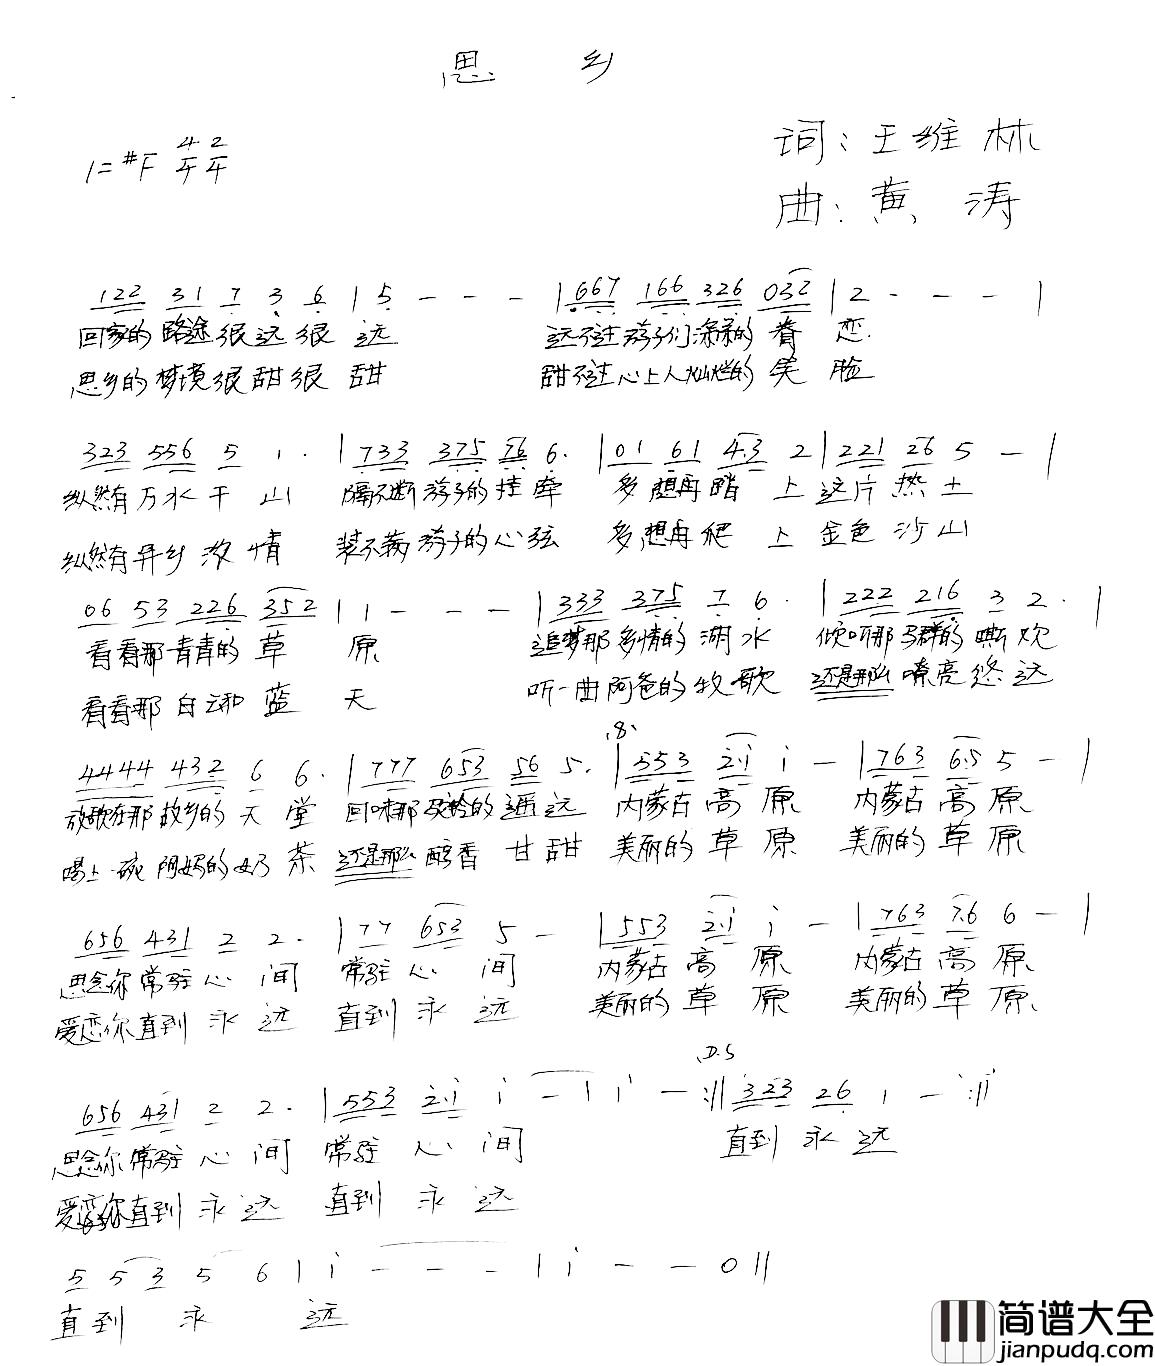 思 乡
词：王维林
1=#F 4/4 2/4
曲：黄 涛
122 31 7 3 6 | 5 - - - | 667 166 326 032 | 2 - - - |
回家的 路途很远很 远 远不过游子们深深的 眷 恋
思乡的梦境很甜很 甜 甜不过心上人灿烂的 笑 脸
323 556 5 1· | 733 375 76 6· | 01 61 4·3 2 | 221 26 5 - |
纵然有万水千山 隔不断游子的挂牵 多想再踏上这片热土
纵然有异乡浓情 装不满游子的心弦 多想再爬上金色沙山
06 53 226 352 | 1 - - - | 333 375 7 6· | 222 216 3 2· |
看看那青青的草 原 追梦那多情的湖水 倾听那马群的嘶欢
看看那白云和蓝 天 听一曲阿爸的牧歌 还是那么嘹亮悠远
4444 432 6 6· | 777 653 56 5· | 553 2·1 1 - | 763 6·5 5 - |
放歌在那故乡的天堂 回味那驼铃的遥远 内蒙古高原 内蒙古高原
喝上一碗阿妈的奶茶 还是那么醇香甘甜 美丽的草原 美丽的草原
656 431 2 2· | 77 653 5 - | 553 2·1 1 - | 763 7·6 6 - |
思念你常驻心间 常驻心间 内蒙古高原 内蒙古高原
爱恋你直到永远 直到永远 美丽的草原 美丽的草原
D.S
656 431 2 2· | 553 2·1 1 - | 1 - :|| 323 26 1 - :||
思念你常驻心间 常驻心间 直到永远
爱恋你直到永远 直到永远
5 5 3 5 6 | 1 - - - | 1 - - 0 ||
直到 永 远
简谱大全
jianpudq.com